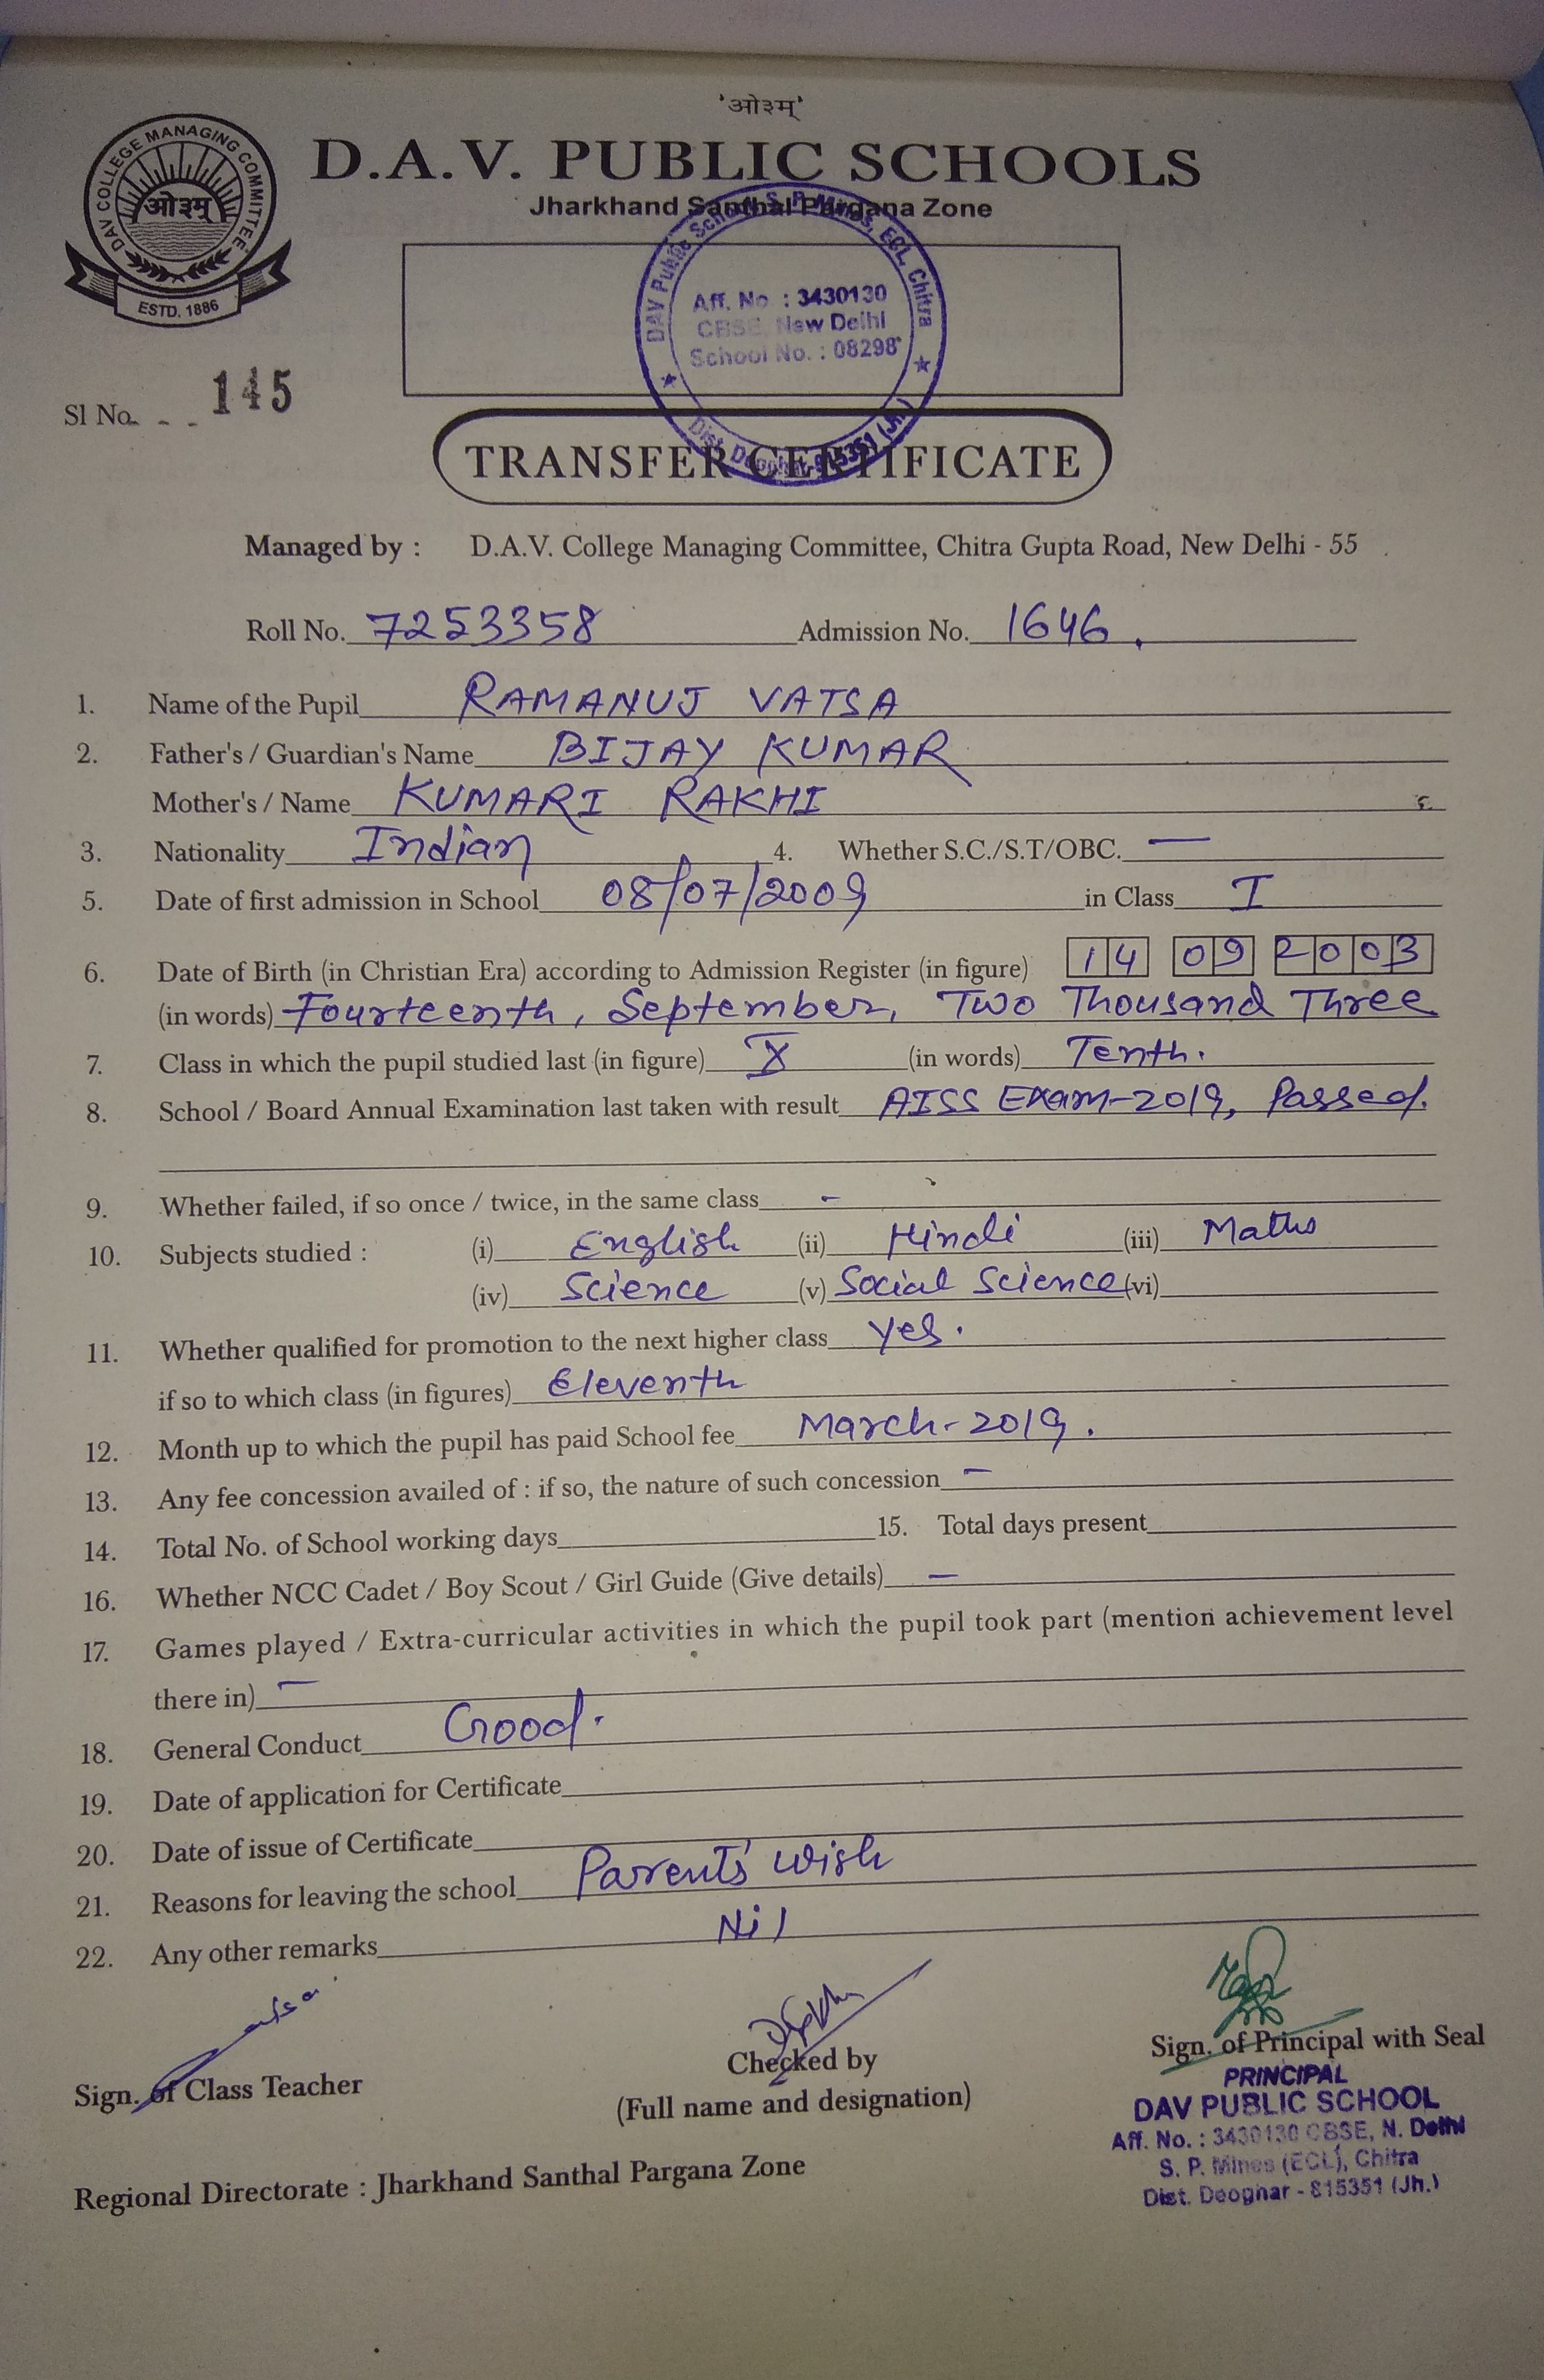 'ओ३म्'
DAV COLLEGE MANAGING COMMITTEE
ओ३म्
ESTD. 1886
D.A.V. PUBLIC SCHOOLS
Jharkhand Santhal Pargana Zone
DAV Public School, S. P. Mines, ECL, Chitra
Aff. No. : 3430130
CBSE, New Delhi
School No. : 08298
Dist. Deoghar-815351 (Jh.)
Sl No. 145
TRANSFER CERTIFICATE
Managed by : D.A.V. College Managing Committee, Chitra Gupta Road, New Delhi - 55
Roll No. 7253358 Admission No. 1646.
1. Name of the Pupil RAMANUJ VATSA
2. Father's / Guardian's Name BIJAY KUMAR
Mother's / Name KUMARI RAKHI
3. Nationality Indian 4. Whether S.C./S.T/OBC. —
5. Date of first admission in School 08/07/2009 in Class I
6. Date of Birth (in Christian Era) according to Admission Register (in figure) 14 09 2003
(in words) Fourteenth, September, Two Thousand Three
7. Class in which the pupil studied last (in figure) X (in words) Tenth.
8. School / Board Annual Examination last taken with result AISS Exam-2019, Passed.
9. Whether failed, if so once / twice, in the same class -
10. Subjects studied : (i) English (ii) Hindi (iii) Maths
(iv) Science (v) Social Science (vi)
11. Whether qualified for promotion to the next higher class Yes.
if so to which class (in figures) Eleventh
12. Month up to which the pupil has paid School fee March-2019.
13. Any fee concession availed of : if so, the nature of such concession —
14. Total No. of School working days 15. Total days present
16. Whether NCC Cadet / Boy Scout / Girl Guide (Give details) —
17. Games played / Extra-curricular activities in which the pupil took part (mention achievement level
there in) —
18. General Conduct Good.
19. Date of application for Certificate
20. Date of issue of Certificate
21. Reasons for leaving the school Parents' Wish
22. Any other remarks Nil
Sign. of Class Teacher
Checked by
(Full name and designation)
Sign. of Principal with Seal
PRINCIPAL
DAV PUBLIC SCHOOL
Aff. No. : 3430130 CBSE, N. Delhi
S. P. Mines (ECL), Chitra
Dist. Deoghar - 815351 (Jh.)
Regional Directorate : Jharkhand Santhal Pargana Zone